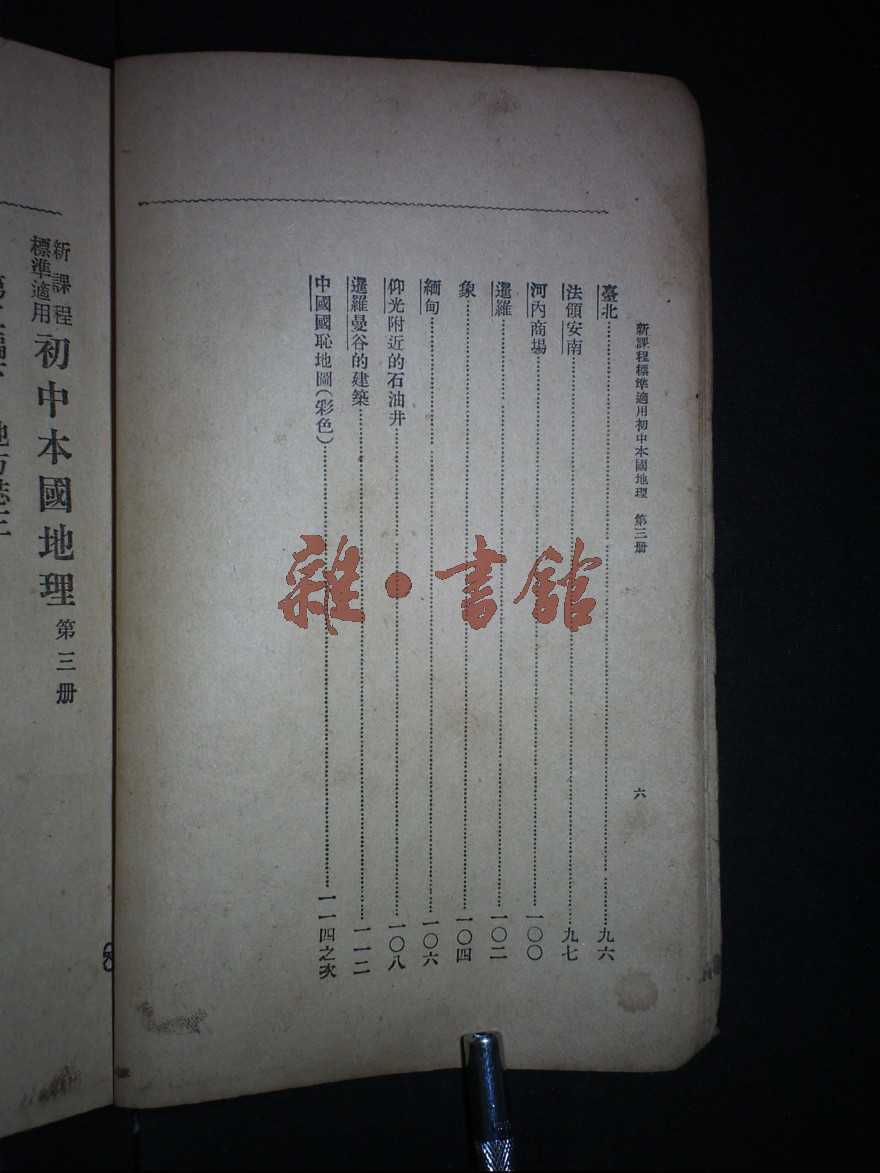 新課程標準適用初中本國地理 第三册
六
臺北……九六
法領安南……九七
河內商場……一〇〇
暹羅……一〇二
象……一〇四
緬甸……一〇六
仰光附近的石油井……一〇八
暹羅曼谷的建築……一一二
中國國恥地圖(彩色)……一一四之次
雜·書館
新課程
標準適用
初中本國地理 第三册